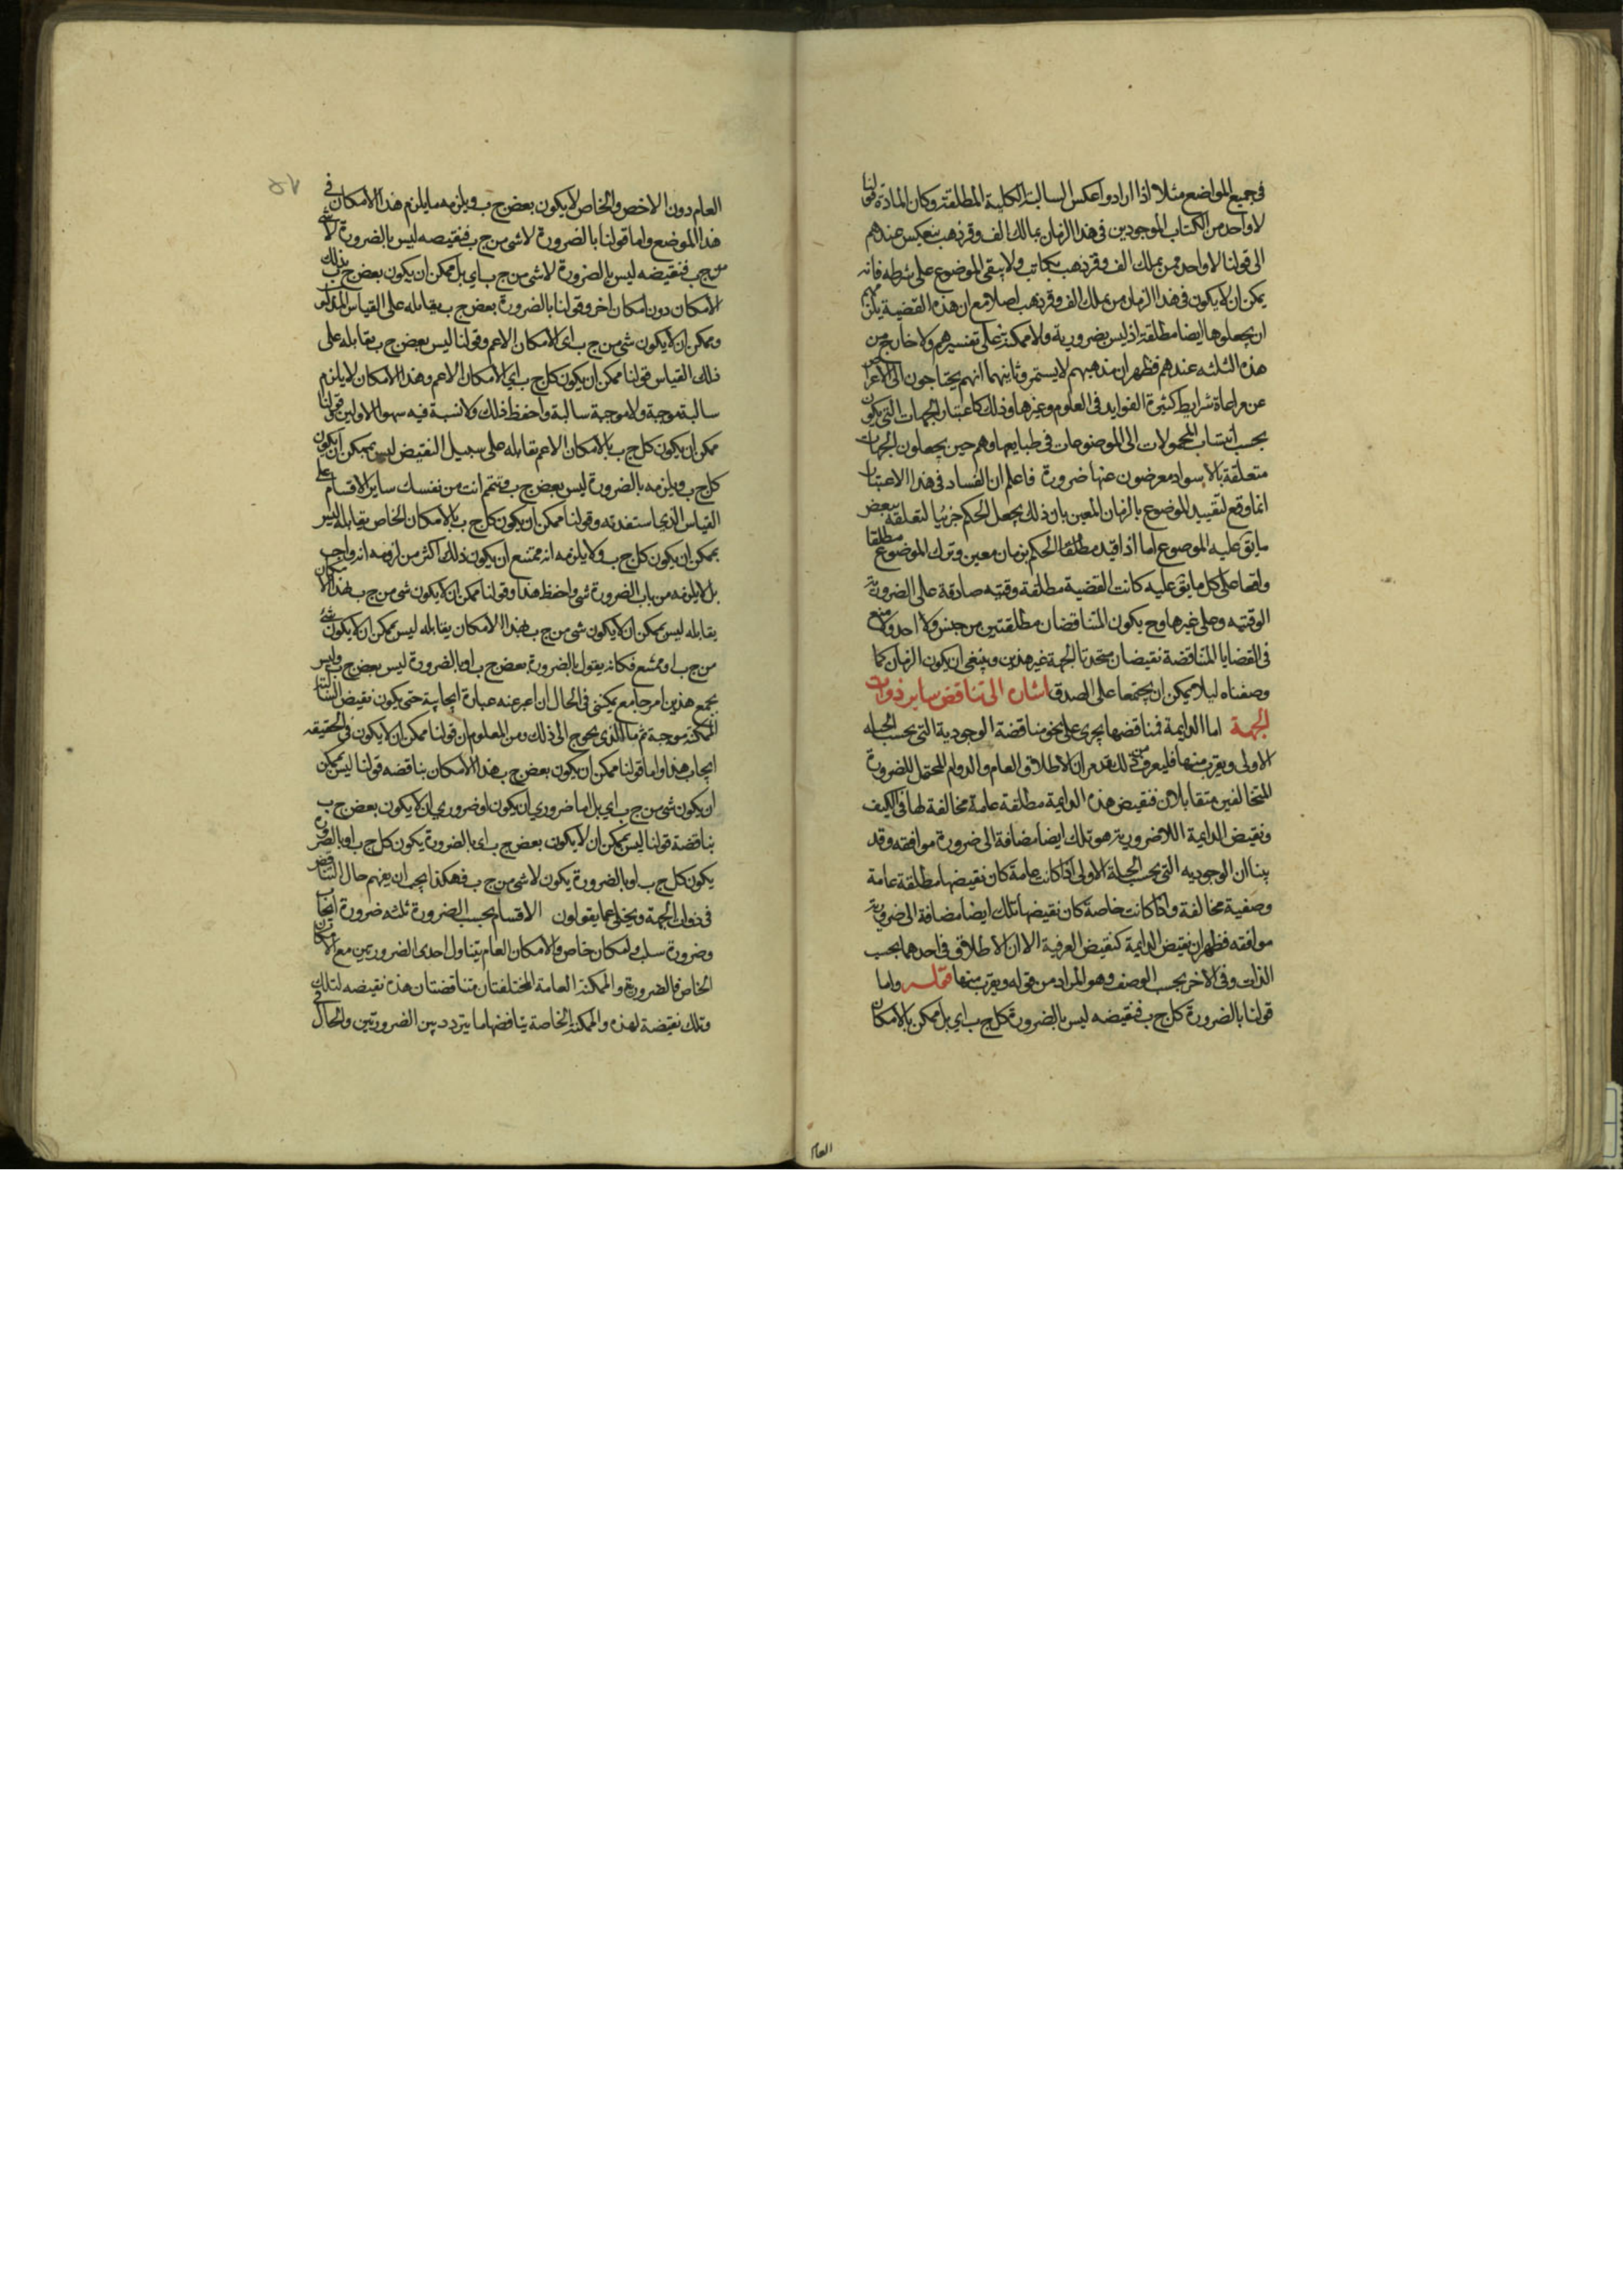 في جميع المواضع مثلا اذا ارادوا عكس السالبة الكلية المطلقة وكان المادة قولنا
لا واحد من الكتاب الموجودين في هذا الزمان بمالك الف وقر ذهب ينعكس عندهم
الى قولنا لا واحد ممن يملك الف وقر ذهب بكاتب ولا يبقى الموضوع على شرطه فانه
يمكن ان لا يكون في هذا الزمان من يملك الف وقر ذهب اصلا مع ان هذه القضية يلزمهم
ان يجعلوها ايضا مطلقة اذ ليس بضرورية ولا ممكنة على تفسيرهم ولا خارج من
هذه الثلثه عندهم فظهر ان مذهبهم لا يستمر وثانيهما انهم يحتاجون الى الاعراض
عن مراعاة شرايط كثيرة الفوايد في العلوم وغيرها وذلك كاعتبار الجهات التي يكون
بحسب انتساب المحمولات الى الموضوعات في طبايعها وهم حين يجعلون الجهات
متعلقة بالاسوار معرضون عنها ضرورة فاعلم ان الفساد في هذا الاعتبار
انما وقع لتقييد الموضوع بالزمان المعين بان ذلك يجعل الحكم جزئيا لتعلقه ببعض
ما يق عليه الموضوع اما اذا قيد مطلقا الحكم بزمان معين وترك الموضوع مطلقا
واقعا على كل ما يق عليه كانت القضية مطلقة وقتيه صادقة على الضرورية
الوقتيه وعلى غيرها وح يكون المتناقضان مطلقتين من جنس واحد ولا منع
في القضايا المتناقضة نقيضان متحدتا الجهة غير هذين وينبغي ان يكون الزمان كما
وصفناه ليلا يمكن ان يجتمعا على الصدق اشارة الى تناقض ساير ذوات
الجهة اما الدايمة فمناقضها يجري على نحو مناقضة الوجودية التي بحسب الحيله
الاولى ويقرب منها فليعرف ذلك قد مر ان الاطلاق العام والدوام المحتمل للضرورة
المتخالفين متقابلان فنقيض هذه الدايمة مطلقة عامة مخالفة لها في الكيف
ونقيض الدايمة اللاضرورية هو تلك ايضا مضافة الى ضرورة موافقه وقد
بينا ان الوجوديه التي بحسب الحيلة الاولى اذا كانت عامة كان نقيضها مطلقة عامة
وصفية مخالفة واذا كانت خاصة كان نقيضها تلك ايضا مضافة الى ضرورية
موافقه فظهر ان نقيض الدايمة كنقيض العرفية الا ان الاطلاق في احدهما بحسب
الذات وفي الاخر بحسب الوصف وهو المراد من قوله ويقرب منها قوله واما
قولنا بالضرورة كل ج ب فنقيضه ليس بالضرورة كل ج ب اي بل ممكن بالامكان
العام
٥٧
العام دون الاخص والخاص لا يكون بعض ج ب ويلزمه ما يلزم هذا الامكان في
هذا الموضع واما قولنا بالضرورة لا شي من ج ب فنقيضه ليس بالضرورة لا شي
من ج ب فنقيضه ليس بالضرورة لا شي من ج ب اي بل ممكن ان يكون بعض ج ب بذلك
الامكان دون امكان اخر وقولنا بالضرورة بعض ج ب يقابله على القياس المذكور
ويمكن ان لا يكون شي من ج ب اى الامكان الاعم وقولنا ليس بعض ج ب يقابله على
ذلك القياس قولنا ممكن ان يكون كل ج ب اي الامكان الاعم وهذا الامكان لا يلزم
سالبة موجبة ولا موجبة سالبة واحفظ ذلك ولا نسبة فيه سهوا الاولين قولنا
ممكن ان يكون كل ج ب بالامكان الاعم يقابله على سبيل النقيض ليس بممكن ان يكون
كل ج ب ويلزمه بالضرورة ليس بعض ج ب وتتم انت من نفسك ساير الاقسام على
القياس الذي استفدته وقولنا ممكن ان يكون كل ج ب بالامكان الخاص يقابله ليس
بممكن ان يكون كل ج ب ولا يلزمه انه ممتنع ان يكون ذلك اكثر من لزومه انه واجب
بل لا يلزمه من باب الضرورة شي واحفظ هذا وقولنا ممكن ان لا يكون شي من ج ب بهذا الامكان
يقابله ليس بممكن ان لا يكون شي من ج ب بهذا الامكان يقابله ليس بممكن ان لا يكون شي
من ج ب او ممتنع فكانه يقول بالضرورة بعض ج ب او بالضرورة ليس بعض ج ب وليس
يجمع هذين امر جامع يمكنني في الحال ان اعبر عنه عبارة ايجابية حتى يكون نقيض السالبة
الممكنة موجبة ثم ما الذي يحوج الى ذلك ومن المعلوم ان قولنا ممكن ان لا يكون في الحقيقه
ايجاب هذا واما قولنا ممكن ان يكون بعض ج ب هذا الامكان يناقضه قولنا ليس يمكن
ان يكون شي من ج ب اي بل اما ضروري ان يكون او ضروري ان لا يكون بعض ج ب
يناقضة قولنا ليس يمكن ان لا يكون بعض ج ب اى بالضرورة يكون كل ج ب او بالضرورة
يكون كل ج ب او بالضرورة يكون لا شي من ج ب فهكذا يجب ان يفهم حال التناقض
في ذوات الجهة ويخلى عما يقولون الاقسام بحسب الضرورة ثلثه ضرورة ايجاب
وضرورة سلب وامكان خاص والامكان العام يتناول احدى الضرورتين مع الامكان
الخاص فالضرورة والممكنة العامة المختلفتان متناقضتان هذه نقيضه لتلك
وتلك نقيضة لهذه والممكنة الخاصة يناقضها ما يتردد بين الضرورتين والحال في